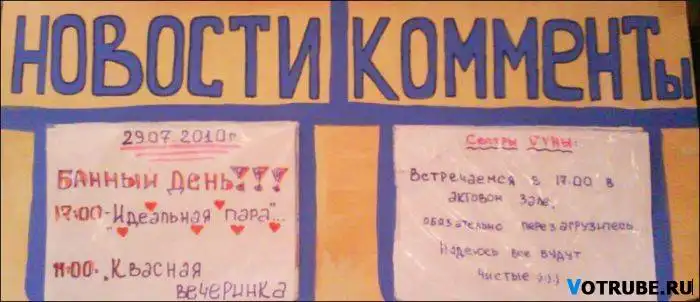 НОВОСТИ
КОММЕНТы
29.07.2010г
БАННЫЙ ДЕНЬ!!!
17:00-Идеальная "пара"...
Квасная
вечеринка
Встречаемся в 17.00 в
актовом зале,
обязательно перезагрузитесь
Надеюсь все будут
чистые :):)
VOTRUBE.RU